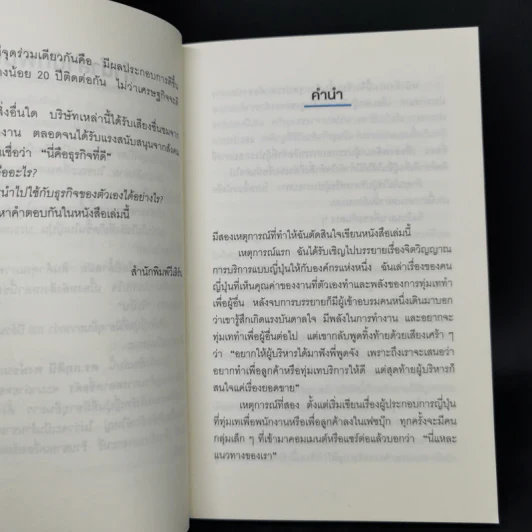 มีจุดร่วมเดียวกันคือ มีผลประกอบการดีขึ้น
น้อย 20 ปีติดต่อกัน ไม่ว่าเศรษฐกิจจะดี
สิ่งอื่นใด บริษัทเหล่านี้ได้รับเสียงชื่นชมจาก
งาน ตลอดจนได้รับแรงสนับสนุนจากสังคม
เชื่อว่า “นี่คือธุรกิจที่ดี”
คืออะไร?
นำไปใช้กับธุรกิจของตัวเองได้อย่างไร?
หาคำตอบกันในหนังสือเล่มนี้
สำนักพิมพ์วีเลิร์น
คำนำ
มีสองเหตุการณ์ที่ทำให้ฉันตัดสินใจเขียนหนังสือเล่มนี้
เหตุการณ์แรก ฉันได้รับเชิญไปบรรยายเรื่องจิตวิญญาณ
การบริการแบบญี่ปุ่นให้กับองค์กรแห่งหนึ่ง ฉันเล่าเรื่องของคน
ญี่ปุ่นที่เห็นคุณค่าของงานที่ตัวเองทำและพลังของการทุ่มเททำ
เพื่อผู้อื่น หลังจบการบรรยายก็มีผู้เข้าอบรมคนหนึ่งเดินมาบอก
ว่าเขารู้สึกเกิดแรงบันดาลใจ มีพลังในการทำงาน และอยากจะ
ทุ่มเททำเพื่อผู้อื่นต่อไป แต่เขากลับพูดทิ้งท้ายด้วยเสียงเศร้า ๆ
ว่า “อยากให้ผู้บริหารได้มาฟังพี่พูดจัง เพราะถึงเราจะเสนอว่า
อยากทำเพื่อลูกค้าหรือทุ่มเทบริการให้ดี แต่สุดท้ายผู้บริหารก็
สนใจแค่เรื่องยอดขาย”
เหตุการณ์ที่สอง ตั้งแต่เริ่มเขียนเรื่องผู้ประกอบการญี่ปุ่น
ที่ทุ่มเทเพื่อพนักงานหรือเพื่อลูกค้าลงในเฟซบุ๊ก ทุกครั้งจะมีคน
กลุ่มเล็ก ๆ ที่เข้ามาคอมเมนต์หรือแชร์ต่อแล้วบอกว่า “นี่แหละ
แนวทางของเรา”